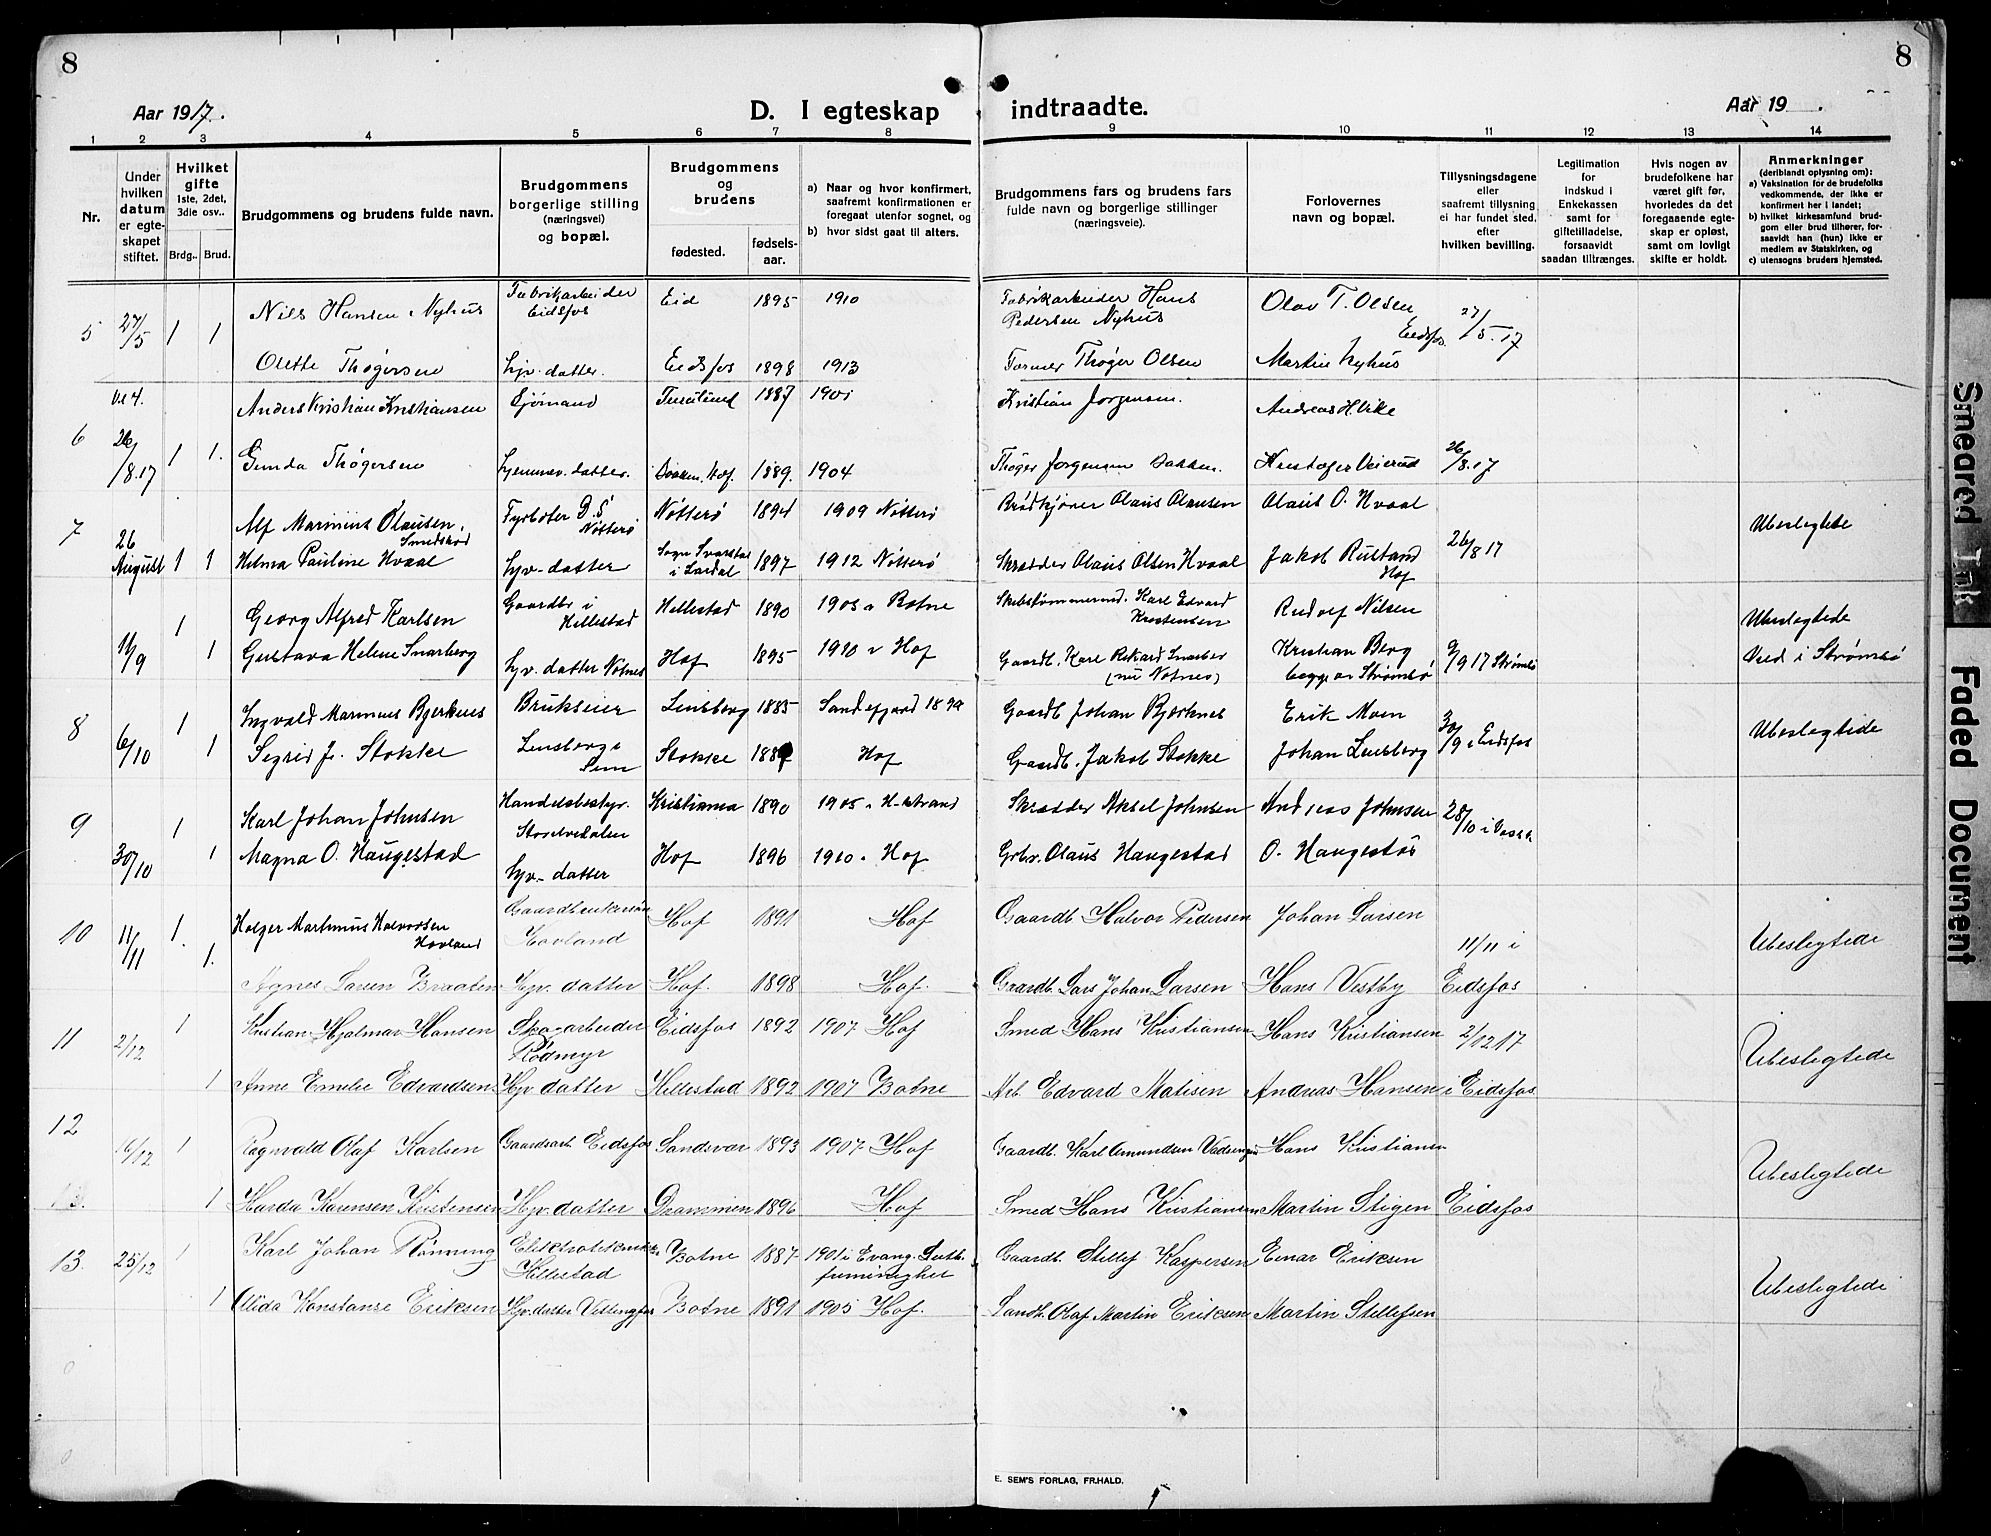 8
8
Aar 1917.
D. I egteskap indtraadte.
Aar 19 .
1 2 3 4 5 6 7 8 9 10 11 12 13 14
Nr.
Under hvilken datum er egteskapet stiftet.
Hvilket gifte 1ste, 2det, 3die osv..
Brdg.. Brud.
Brudgommens og brudens fulde navn.
Brudgommens borgerlige stilling (næringsvei) og bopæl.
Brudgommens og brudens
fødested. fødselsaar.
a) Naar og hvor konfirmert, saafremt konfirmationen er foregaat utenfor sognet, og
b) hvor sidst gaat til alters.
Brudgommens fars og brudens fars fulde navn og borgerlige stillinger (næringsveie).
Forlovernes navn og bopæl.
Tillysningsdagene eller saafremt tillysning ei har fundet sted. efter hvilken bevilling.
Legitimation for indskud i Enkekassen samt for giftetilladelse, forsaavidt saadan tiltrænges.
Hvis nogen av brudefolkene har været gift før, hvorledes da det foregaaende egteskap er opløst, samt om lovligt skifte er holdt.
Anmerkninger (deriblandt oplysning om):
a) Vaksination for de brudefolks vedkommende, der ikke er konfirmert her i landet;
b) hvilket kirkesamfund brudgom eller brud tilhører, forsaavidt han (hun) ikke er medlem av Statskirken, og
c) utensogns bruders hjemsted.
5 27/5 1 1 Nils Hansen Nyhus Fabrikarbeider Eidsfos Eid 1895 1910 Fabrikarbeider Hans Pedersen Nyhus Olav T. Olsen Eidsfos. 27/5.17
Olette Thøgersen Hjv. datter. Eidsfos 1898 1913 Former Thøger Olsen Martin Nyhus
Anders Kristian Kristiansen Sjømand 1887 1901 Kristian Jørgensen. Andreas H. Vike
6 26/8.17 1 1. Gunda Thøgersen Hjemmev. datter. Hof. 1889. 1904 Thøger Jørgensen Kristofer Veierud 26/8.17
7 26 August 1 1 Alf Marinius Olausen. Smedsrød Fyrbøter D.S Nøtterø Nøtterø 1894 1909 Nøtterø Brødkjører Olaus Olausen Olaus O. Hvaal Ubeslegtede
Helma Pauline Hvaal Hjv. datter Sogn Svarstad i Lardal 1897 1912 Nøtterø Skrædder Olaus Olsen Hvaal Jakob Rustand Hof 26/8 17
1 Georg Alfred Karlsen Gaardbr i Hillestad Hillestad 1890 1905 i Botne Skibstømmermd. Karl Edvard Kristensen Rudolf Nilsen Ubeslegtede
11/9 1 Gustava Helene Snarberg Hjv. datter Nøtnes Hof 1895 1910 i Hof Gaardb. Karl Rikard Snarber (nu Nøtnes) Kristian Berg begge av Strømsø 9/9 17 Strømsø Vied i Strømsø
8 6/10 1 Ingvald Marinius Bjerknes Brukseier Linsberg 1885 Sandefjord 1899 Gaardb Johan Bjerknes Erik Moen 30/9 i Eidsfos Ubeslegtede
1 Sigrid J. Stokke Linsberg i Sem Stokke 1889 Hof Gaardb. Jakob Stokke Johan Linsberg
9 30/10 1 Karl Johan Johnsen Handelsbestyr. Kristiania 1890 1905 i H-strand Skrædder Aksel Johnsen Andreas Johnsen 28/10
1 Magna O. Haugestad Hjv. datter Hof 1896 1910 i Hof Grbr. Olaus Haugestad O. Haugestad
10 11/11 1. Holger Martinius Halvorsen Hovland Hovland Hof 1891 Hof Gaardb. Halvor Pedersen Johan Larsen 11/11 i Ubeslegtede
1. Agnes Larsen Braaten Hjv. datter Hof. 1898 Hof. Gaardb. Lars Johan Larsen Hans Vestby Eidsfos
11 2/12 1 Kristian Hjalmar Hansen Skogarbeider Rødmyr Eidsfos 1892 1907 Hof Smed Hans Kristiansen Hans Kristiansen 2/12 17 Ubeslegtede
1 Anne Emilie Edvardsen Hjv datter Hillestad 1892 1907 Botne Arb. Edvard Matisen Andreas Hansen i Eidsfos
12 16/12 1 Ragnvald Olaf Karlsen Gaardsarb. Eidsfos Sandsvær 1893 1907 Hof Gaardb. Karl Amundsen Hans Kristiansen Ubeslegtede
13. 1 Harda Karensen Kristensen Hjv. datter Drammen 1896 Hof Smed Hans Kristiansen Martin Stigen Eidsfos
13. 25/12 1 Karl Johan Rønning Hillestad Botne 1887 1901 i Evang. Luth. frimenighet Gaardb. Stillef Kaspersen Einar Eriksen Ubeslegtede
1 Alida Konstanse Eriksen Hjv. datter Botne 1891 1905 Hof. Landh. Olaf Martin Eriksen Martin Stillefsen
E. SEM'S FORLAG, FR.HALD.
Smeared Ink
Faded Document